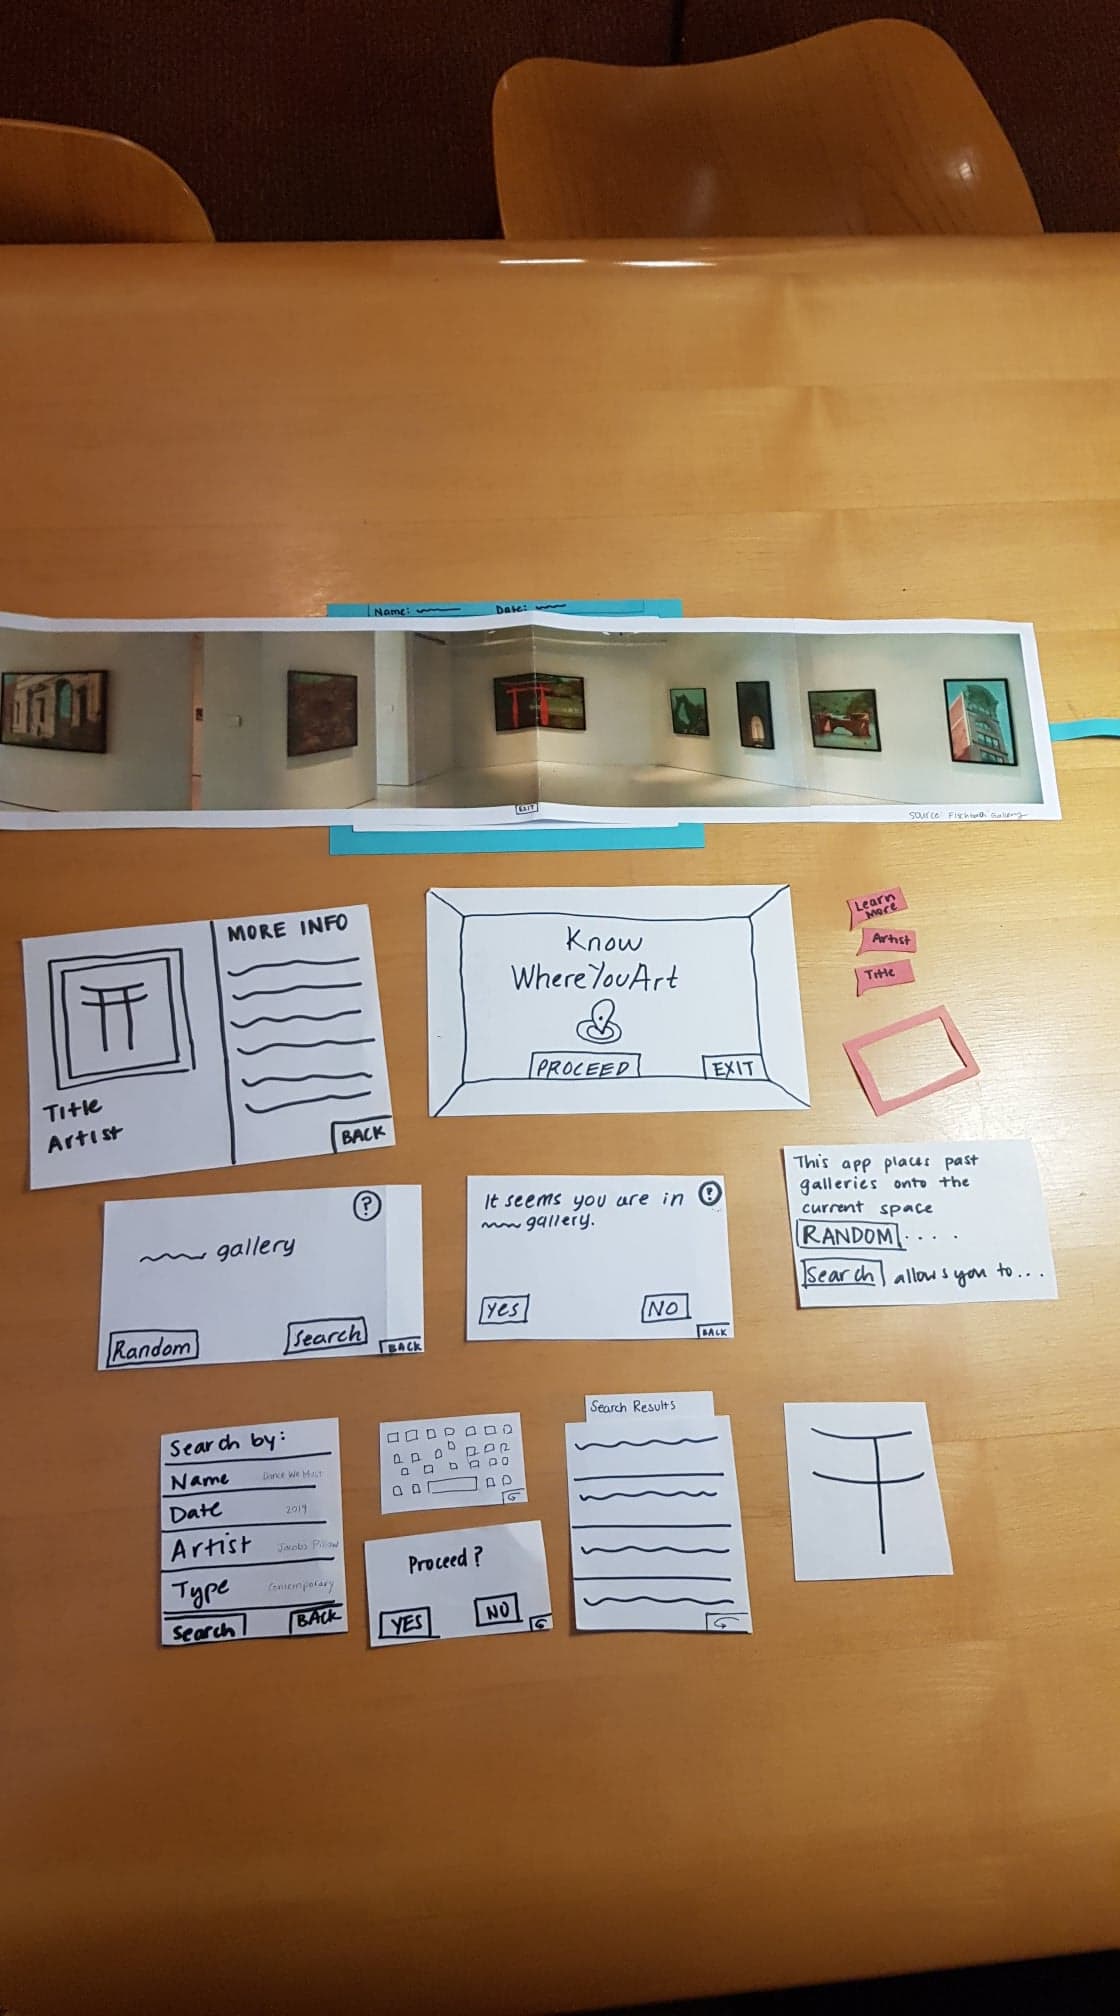 Name:
Date:
EXIT
Source Fischbach Gallery
MORE INFO
Title
Artist
BACK
Know
WhereYouArt
PROCEED
EXIT
Learn
More
Artist
Title
?
gallery
Random
Search
BACK
It seems you are in
gallery.
?
Yes
NO
BACK
This app places past
galleries onto the
current space
RANDOM ....
Search allows you to...
Search by:
Name Dance We Must
Date 2019
Artist Jacobs Pillow
Type Contemporary
Search BACK
Proceed?
YES NO
Search Results